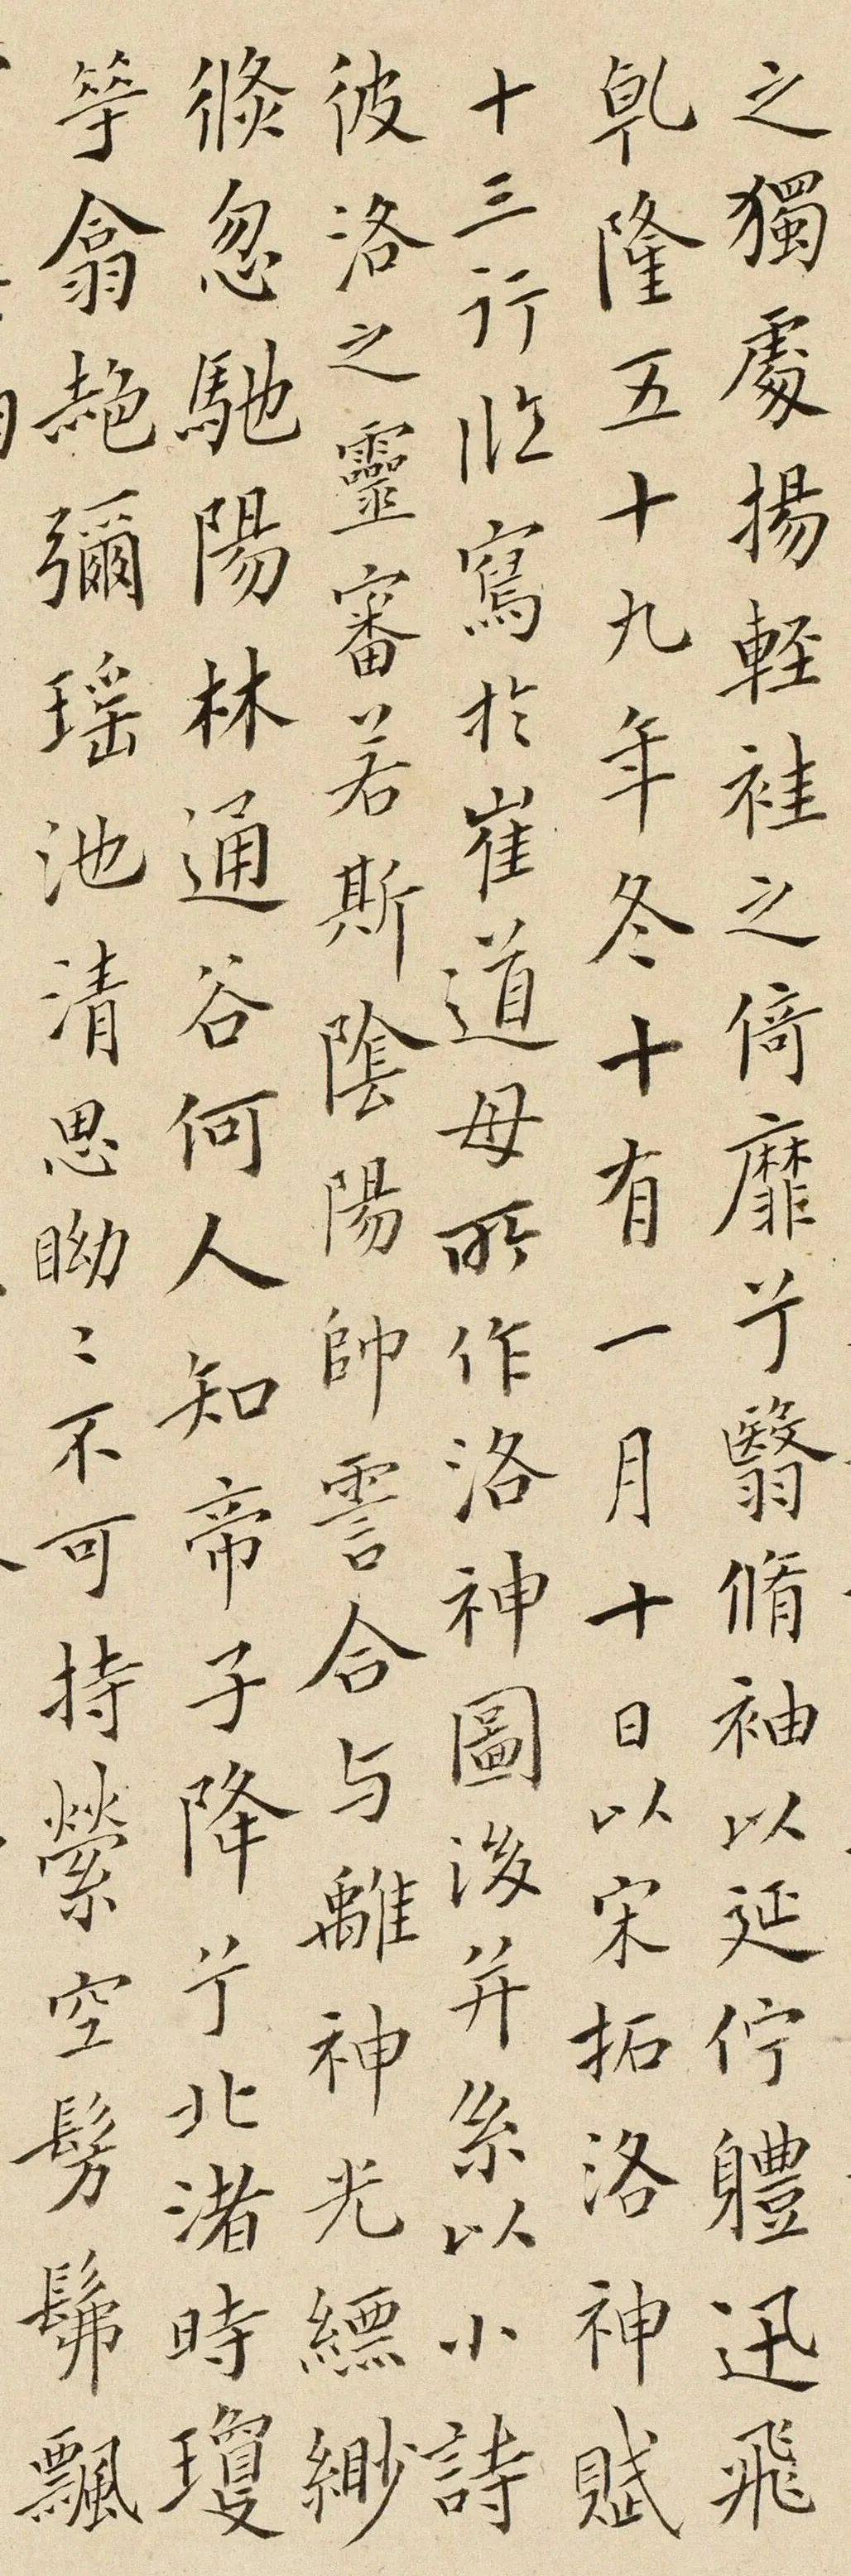 之獨處揚軽袿之倚靡兮翳脩袖以延佇軆迅飛
乹隆五十九年冬十有一月十日以宋拓洛神賦
十三行临寫於崔道母所作洛神圖後并系以小詩
彼洛之靈審若斯陰陽帥䨱合与離神光縹緲
倏忽馳陽林通谷何人知帝子降兮北渚時瓊
華翕赩彌瑶池清思眑〻不可持縈空髣髴飄